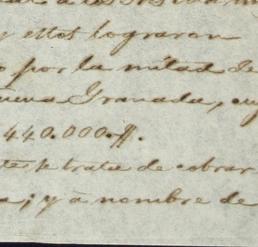 y estos lograron
por la mitad de
Granada, cuy
440.000.₶.
te se trata de cobrar
a; y a nombre de